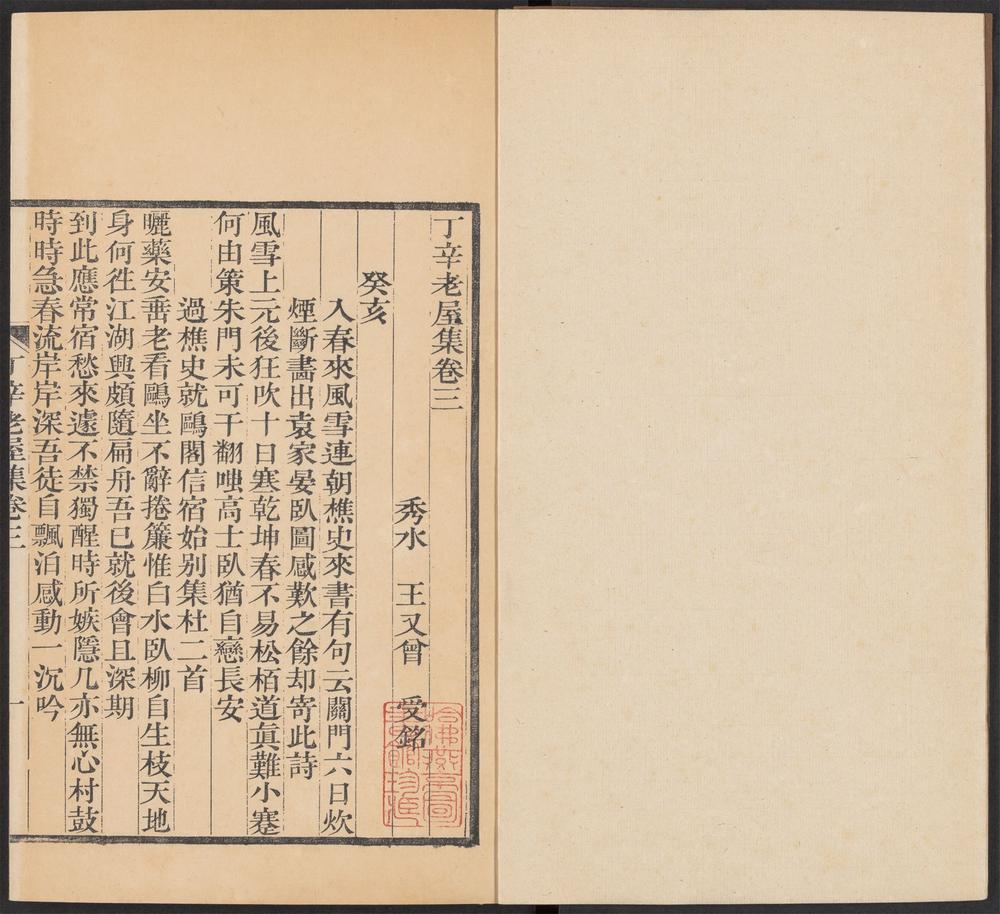 丁辛老屋集卷三
秀水 王又曾 受銘
癸亥
入春來風雪連朝樵史來書有句云關門六日炊
煙斷畵出袁家晏臥圖感歎之餘却寄此詩
風雪上元後狂吹十日寒乾坤春不易松栢道眞難小蹇
何由策朱門未可干翻嗤高士臥猶自戀長安
過樵史就鷗閣信宿始别集杜二首
曬藥安垂老看鷗坐不辭捲簾惟白水臥柳自生枝天地
身何徃江湖興頗隨扁舟吾已就後會且深期
到此應常宿愁來遽不禁獨醒時所嫉隱几亦無心村鼓
時時急春流岸岸深吾徒自飄泊感動一沉吟
丁辛老屋集卷三
一
哈佛燕京圖
書館珍藏